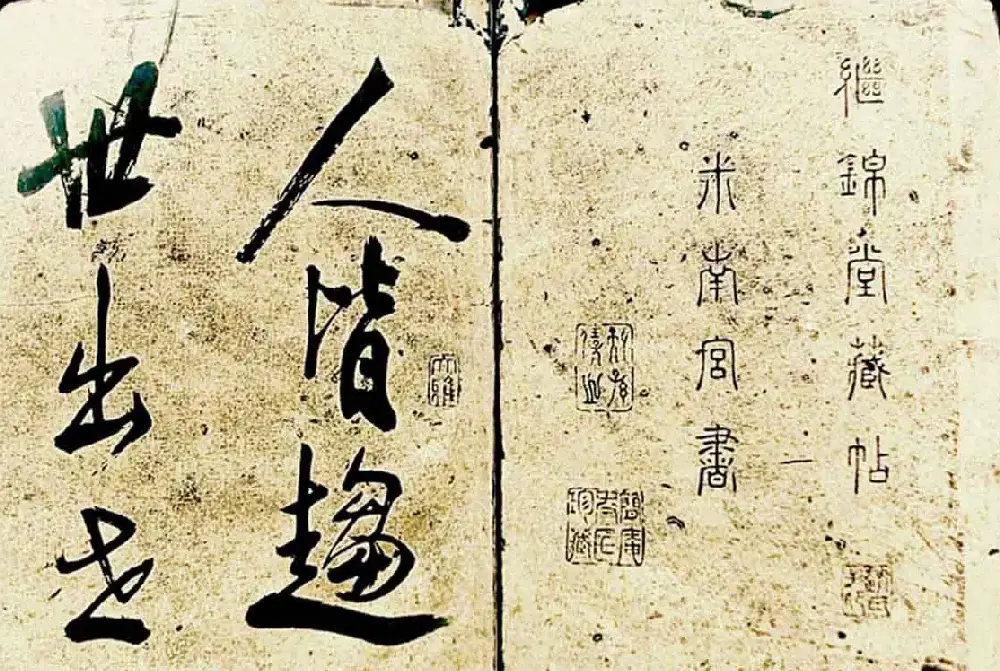 繼錦堂藏帖
米南宮書
人皆趨
世出世